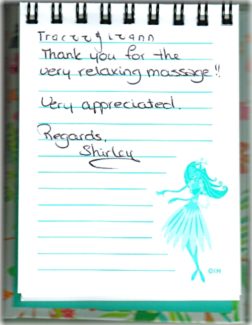 Thank you for the
very relaxing massage!!
Very appreciated.
Regards,
Shirley